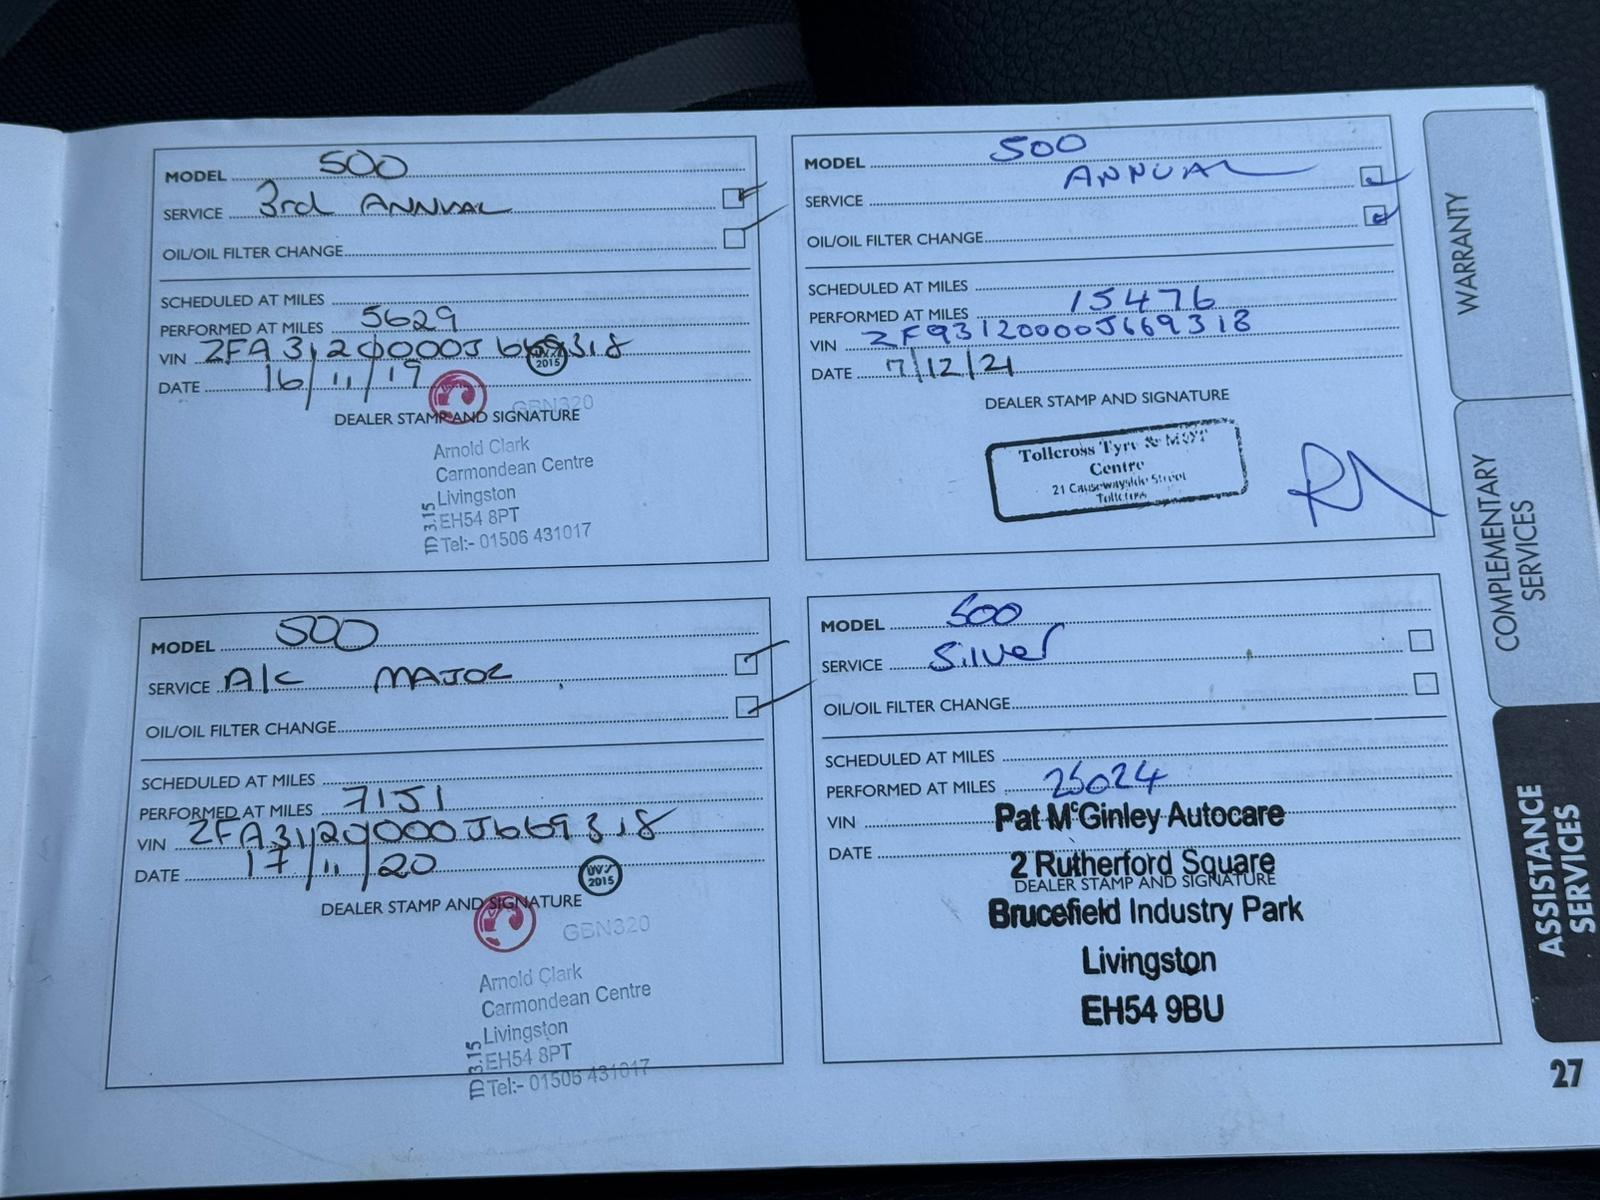 MODEL 500
SERVICE 3rd ANNUAL
OIL/OIL FILTER CHANGE
SCHEDULED AT MILES
PERFORMED AT MILES 5629
VIN ZFA3120000J669318
DATE 16/11/19
2015
GBN320
DEALER STAMP AND SIGNATURE
Arnold Clark
Carmondean Centre
Livingston
EH54 8PT
Tel:- 01506 431017
3.15
MODEL 500
SERVICE ANNUAL
OIL/OIL FILTER CHANGE
SCHEDULED AT MILES
PERFORMED AT MILES 15476
VIN ZF93120000J669318
DATE 7/12/21
DEALER STAMP AND SIGNATURE
Tollcross Tyre & MOT
Centre
21 Causewayside Street
Tollcross
MODEL 500
SERVICE A/C MAJOR
OIL/OIL FILTER CHANGE
SCHEDULED AT MILES
PERFORMED AT MILES 7151
VIN ZFA3120000J669318
DATE 17/11/20
2015
DEALER STAMP AND SIGNATURE
GBN320
Arnold Clark
Carmondean Centre
Livingston
EH54 8PT
Tel:- 01506 431017
3.15
MODEL 500
SERVICE Silver
OIL/OIL FILTER CHANGE
SCHEDULED AT MILES
PERFORMED AT MILES 25024
VIN
Pat McGinley Autocare
DATE
2 Rutherford Square
DEALER STAMP AND SIGNATURE
Brucefield Industry Park
Livingston
EH54 9BU
WARRANTY
COMPLEMENTARY
SERVICES
ASSISTANCE
SERVICES
27